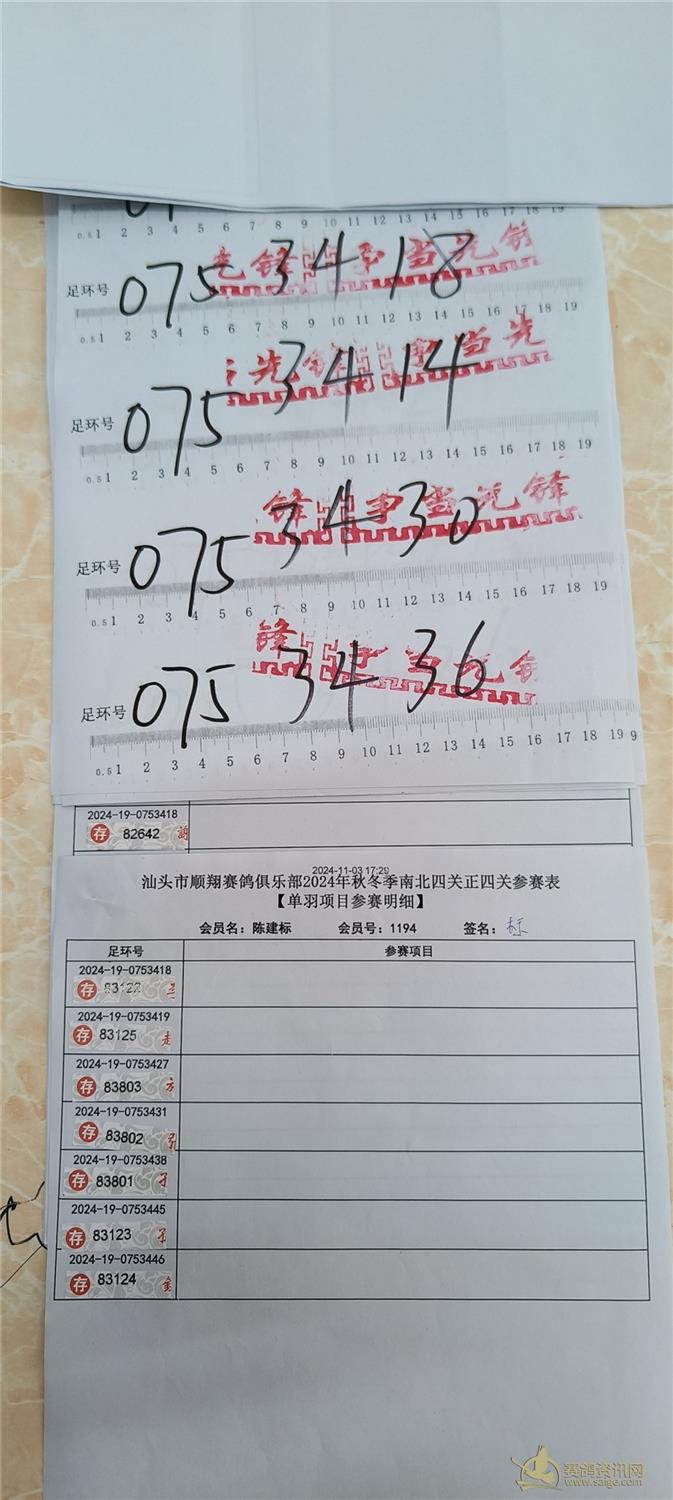 0.5 1 2 3 4 5 6 7 8 9 10 11 12 13 14 15 16 17 18 19
先锋 争当先锋
足环号 075 34 18
0.5 1 2 3 4 5 6 7 8 9 10 11 12 13 14 15 16 17 18 19
先锋 争当先
足环号 075 34 14
0.5 1 2 3 4 5 6 7 8 9 10 11 12 13 14 15 16 17 18 19
锋 争当先锋
足环号 075 34 30
0.5 1 2 3 4 5 6 7 8 9 10 11 12 13 14 15 16 17 18 19
锋 争当先锋
足环号 075 34 36
0.5 1 2 3 4 5 6 7 8 9 10 11 12 13 14 15 16 17 18 19 9
2024-19-0753418
存 82642
2024-11-03 17:29
汕头市顺翔赛鸽俱乐部2024年秋冬季南北四关正四关参赛表
【单羽项目参赛明细】
会员名：陈建标 会员号：1194 签名：标
足环号 参赛项目
2024-19-0753418
存 83122
2024-19-0753419
存 83125
2024-19-0753427
存 83803
2024-19-0753431
存 83802
2024-19-0753438
存 83801
2024-19-0753445
存 83123
2024-19-0753446
存 83124
赛鸽资讯网
www.saige.com